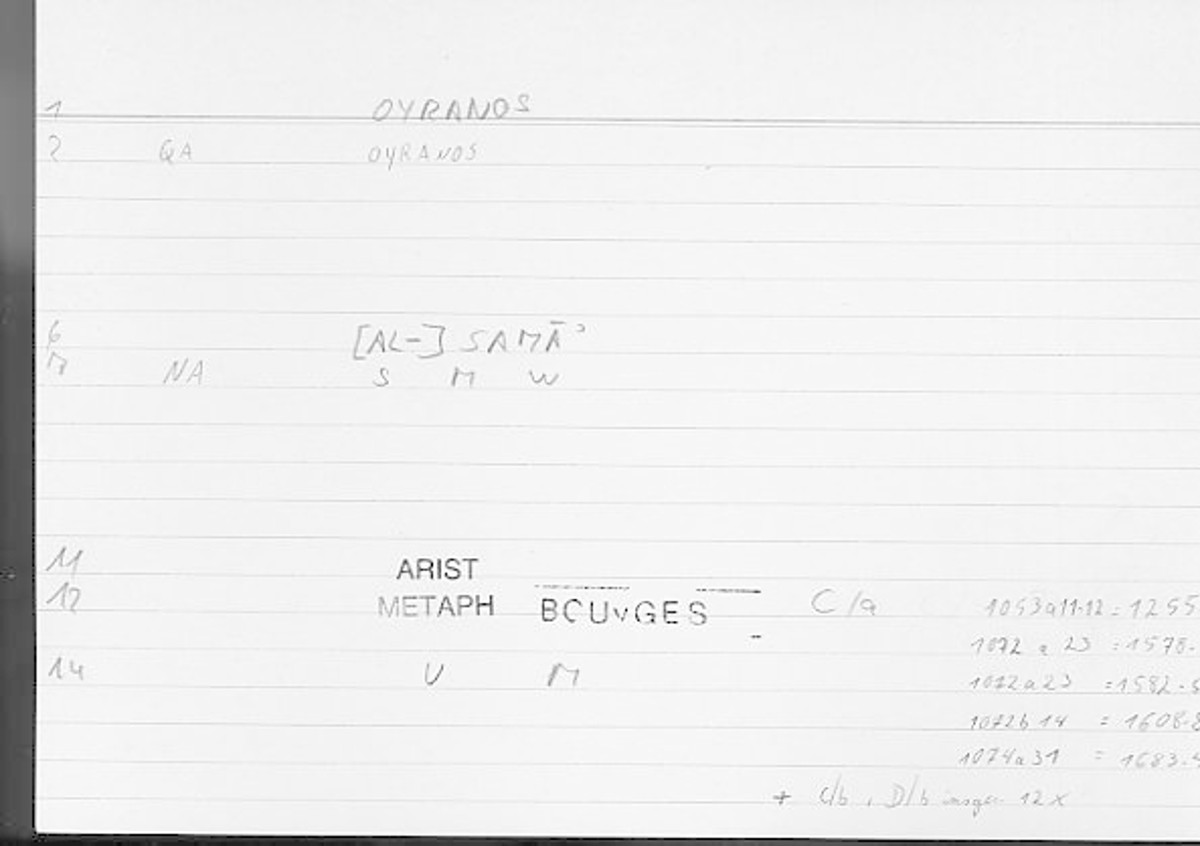 1 OYRANOS
2 QA OYRANOS
6 [AL-] SAMĀʾ
7 NA S M W
11 ARIST
12 METAPH BOUYGES C/a 1053a11-12 = 1255
1072 a 23 = 1578.
1072a23 = 1582.5
14 U M
1072b14 = 1608.8
1074a31 = 1683.4
+ C/b, D/b insges. 12 x